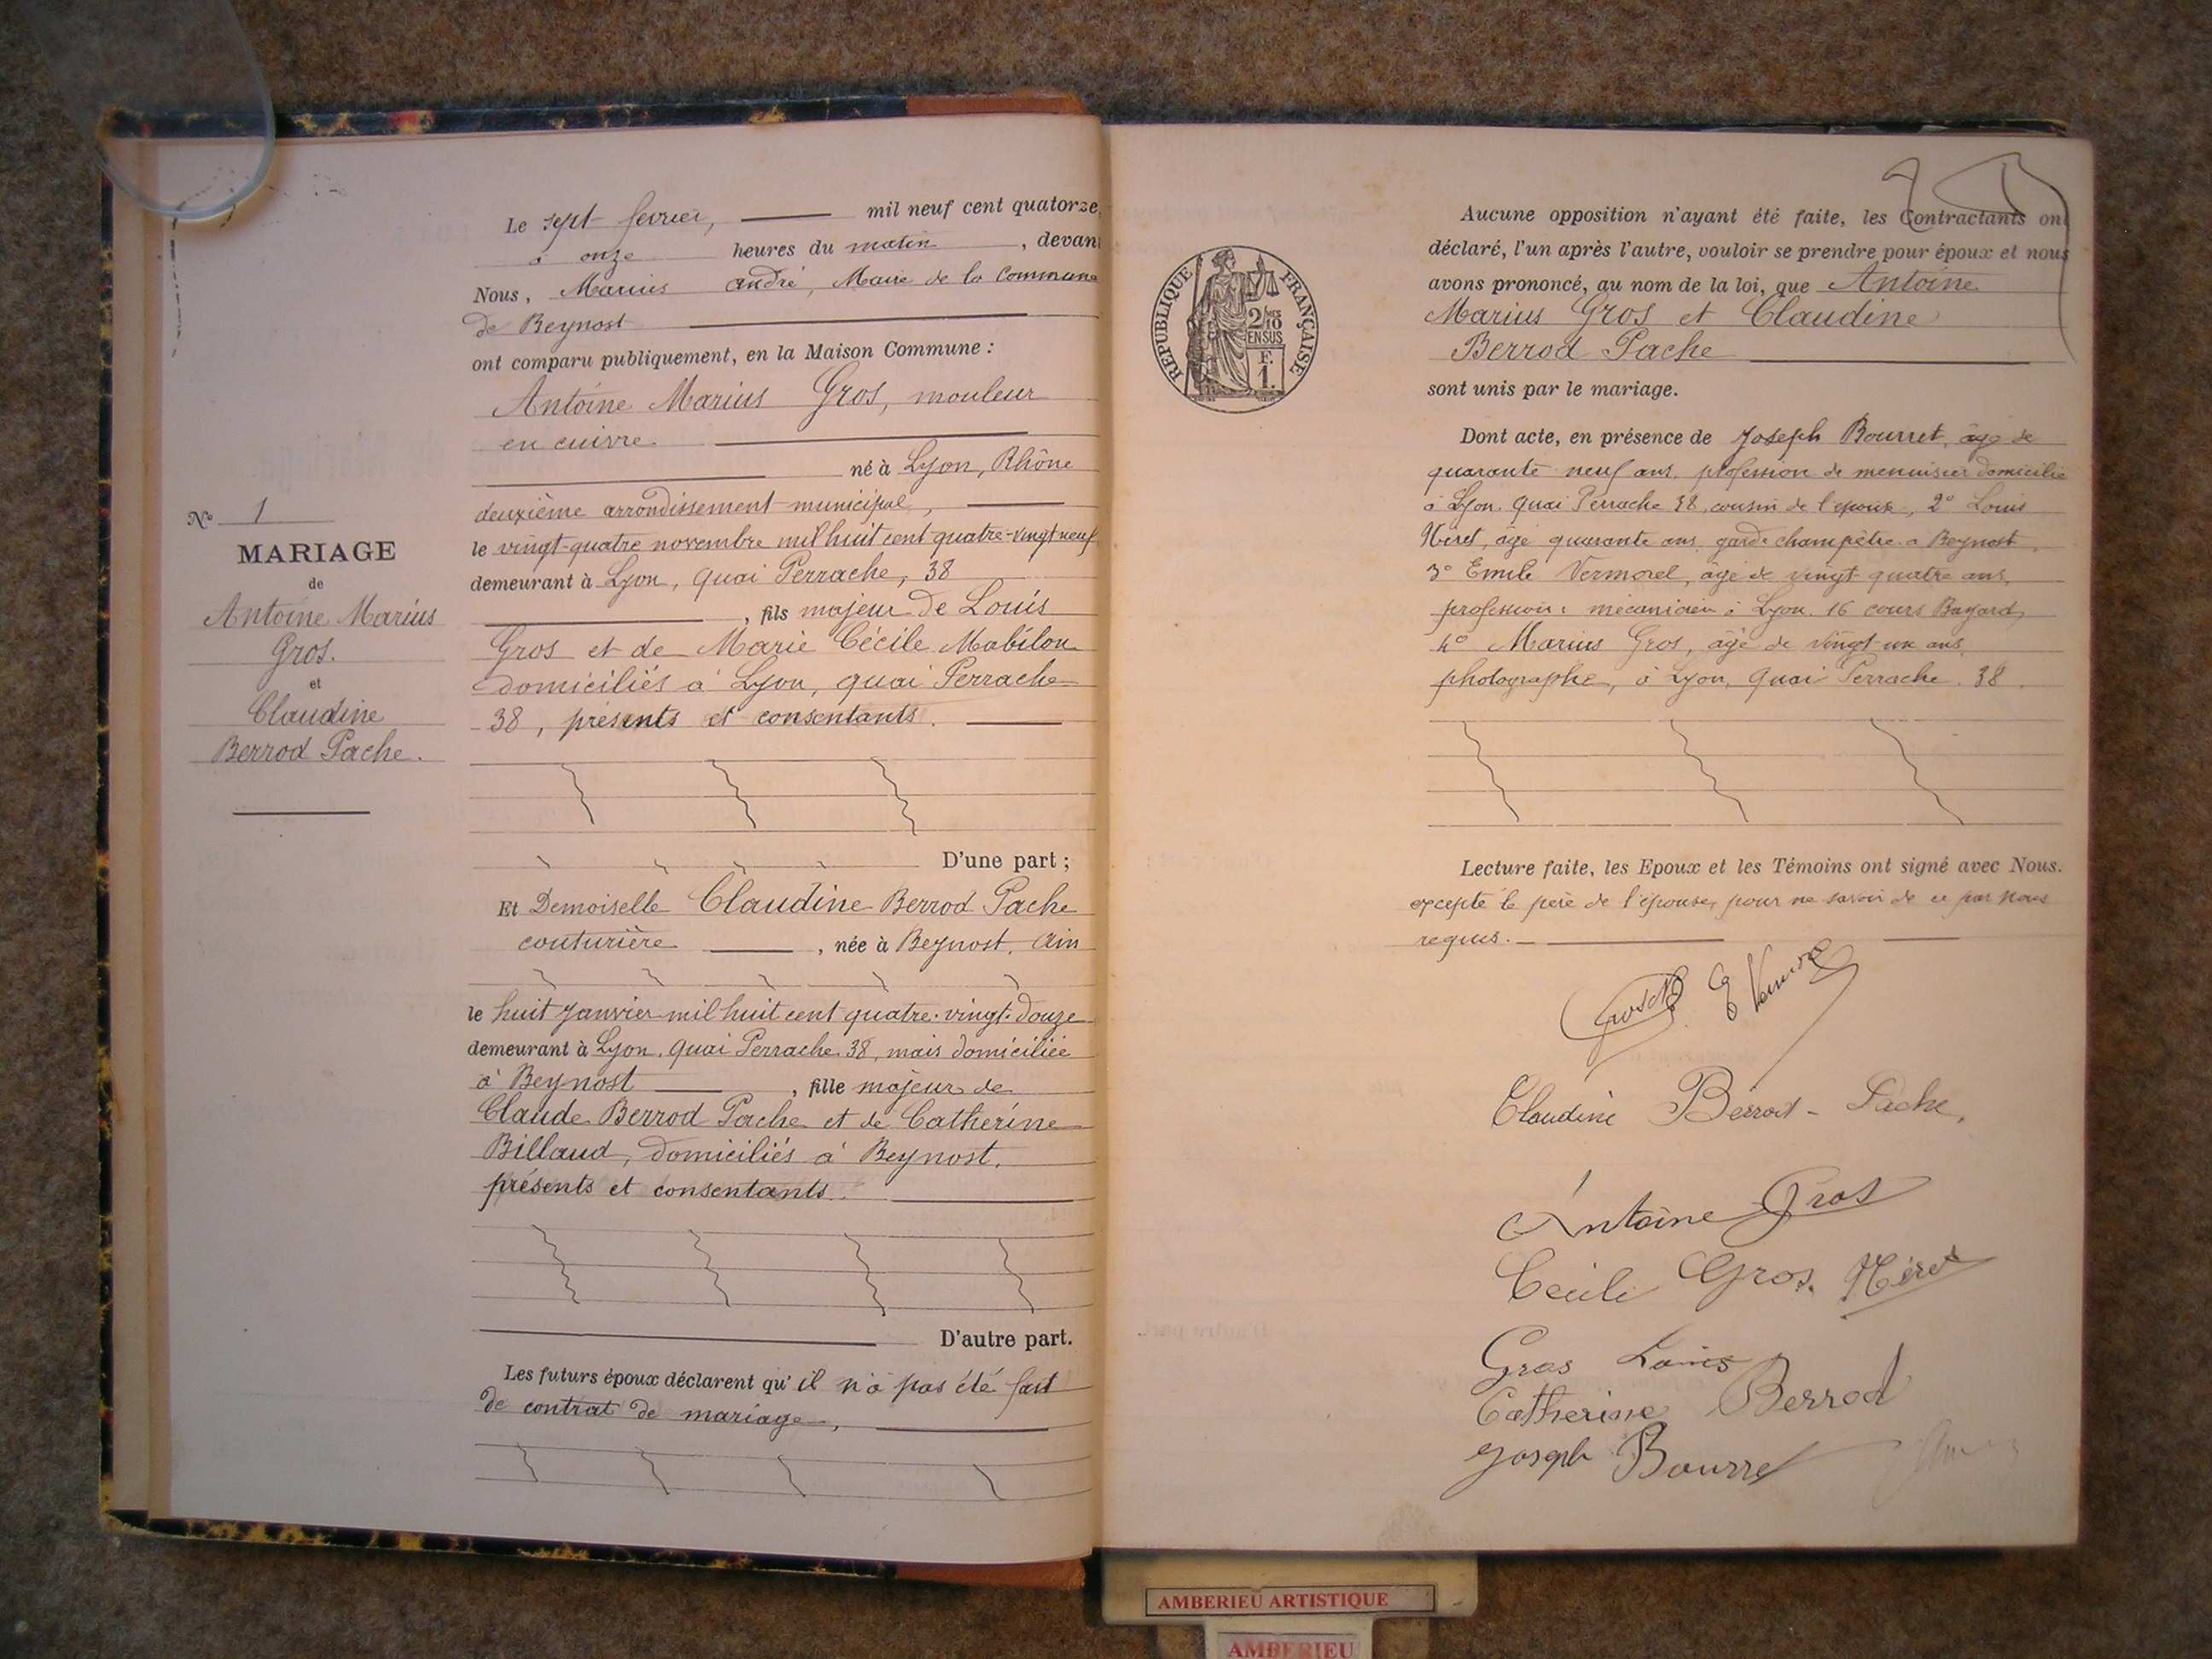 Le sept fevrier, mil neuf cent quatorze,
à onze heures du matin, devant
Nous, Marius André, Maire de la Commune
de Beynost
ont comparu publiquement, en la Maison Commune :
Antoine Marius Gros, mouleur
en cuivre
né à Lyon, Rhône
deuxième arrondissement municipal,
le vingt-quatre novembre mil huit cent quatre-vingt neuf
demeurant à Lyon, quai Perrache, 38
, fils majeur de Louis
Gros et de Marie Cécile Mabilon
domiciliés à Lyon, quai Perrache
38, présents et consentants.
D'une part ;
Et Demoiselle Claudine Berrod Pache
couturière, née à Beynost, Ain
le huit Janvier mil huit cent quatre-vingt-douze
demeurant à Lyon, quai Perrache 38, mais domiciliée
à Beynost, fille majeure de
Claude Berrod Pache et de Catherine
Billaud, domiciliés à Beynost,
présents et consentants.
D'autre part.
Les futurs époux déclarent qu'il n'a pas été fait
de contrat de mariage,
N° 1
MARIAGE
de
Antoine Marius
Gros.
et
Claudine
Berrod Pache.
REPUBLIQUE FRANÇAISE
2/10
EN SUS
F.
1.
Aucune opposition n'ayant été faite, les Contractants ont
déclaré, l'un après l'autre, vouloir se prendre pour époux et nous
avons prononcé, au nom de la loi, que Antoine
Marius Gros et Claudine
Berrod Pache
sont unis par le mariage.
Dont acte, en présence de Joseph Bourret, âge de
quarante neuf ans, profession de menuisier domicilié
à Lyon, Quai Perrache 38, cousin de l'époux, 2° Louis
Néret, âgé quarante ans, garde champêtre à Beynost,
3° Emile Vermorel, âgé de vingt quatre ans,
profession : mécanicien à Lyon, 16 cours Bayard,
4° Marius Gros, âgé de vingt-un ans,
photographe, à Lyon, Quai Perrache, 38.
Lecture faite, les Epoux et les Témoins ont signé avec Nous.
excepté le père de l'épouse, pour ne savoir de ce par nous
requis.
Claudine Berrod-Pache,
Antoine Gros
Cécile Gros. Néret
Gros Louis
Catherine Berrod
Joseph Bourret
AMBERIEU ARTISTIQUE
AMBERIEU